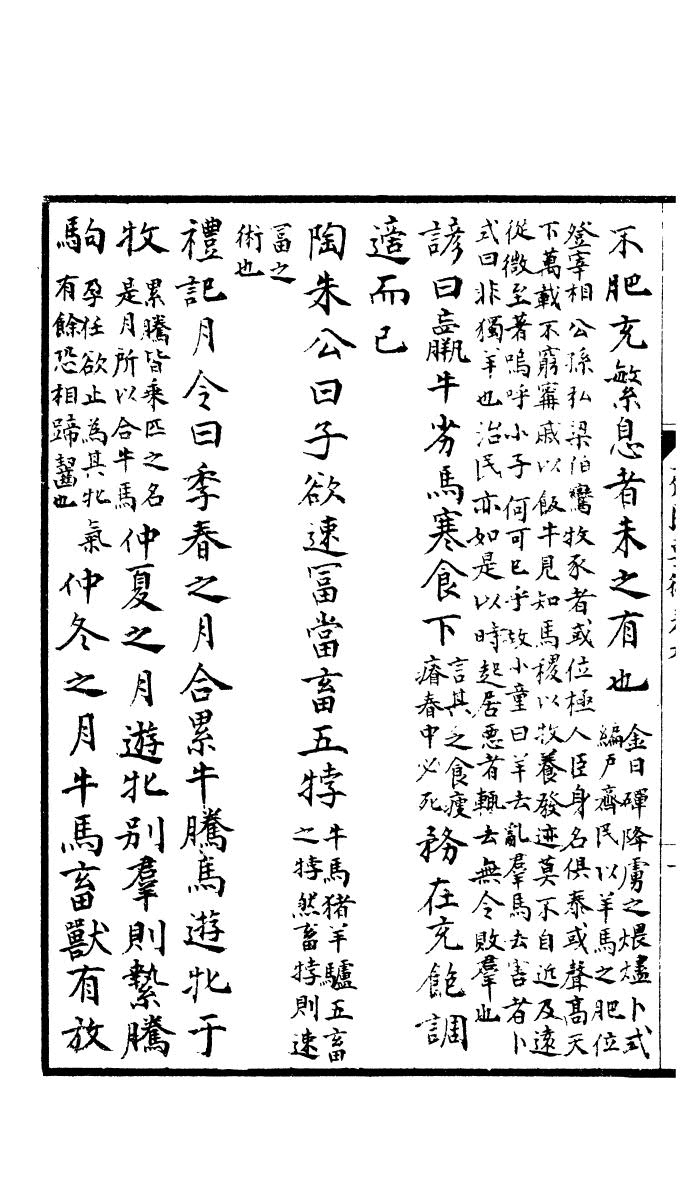 不肥充繁息者未之有也
金日磾降虜之煨燼卜式
編戶齊民以羊馬之肥位
登宰相公孫弘梁伯鸞牧豕者或位極人臣身名俱泰或聲髙天
下萬載不窮甯戚以飯牛見知馬稷以牧養發迹莫不自近及遠
從微至著嗚呼小子何可已乎故小童曰羊去亂羣馬去害者卜
式曰非獨羊也治民亦如是以時起居惡者輒去無令敗羣也
諺曰羸牛劣馬寒食下
言其乏食瘦
瘠春中必死
務在充飽調
適而已
陶朱公曰子欲速冨當畜五牸
牛馬猪羊驢五畜
之牸然畜牸則速
冨之
術也
禮記月令曰季春之月合累牛騰馬遊牝于
牧
累騰皆乘匹之名
是月所以合牛馬
仲夏之月遊牝别羣則縶騰
駒
孕任欲止為其牝氣
有餘恐相蹄齧也
仲冬之月牛馬畜獸有放